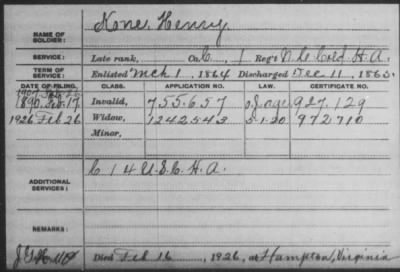 Kone, Henry
NAME OF SOLDIER:
SERVICE: Late rank, Co. C, 1 Reg't N.C. Col'd H.A.
TERM OF SERVICE: Enlisted Mch 1, 1864 Discharged Dec 11, 1865.
DATE OF FILING. CLASS. APPLICATION NO. LAW. CERTIFICATE NO.
1907
1890 17 Invalid, 755.657 of age 927.129
1926 Feb 26 Widow, 1242543 5-1-20 972710
Minor,
ADDITIONAL SERVICES: C 14 U.S.C.H.A.
REMARKS:
Died Feb 16, 1926, at Hampton, Virginia